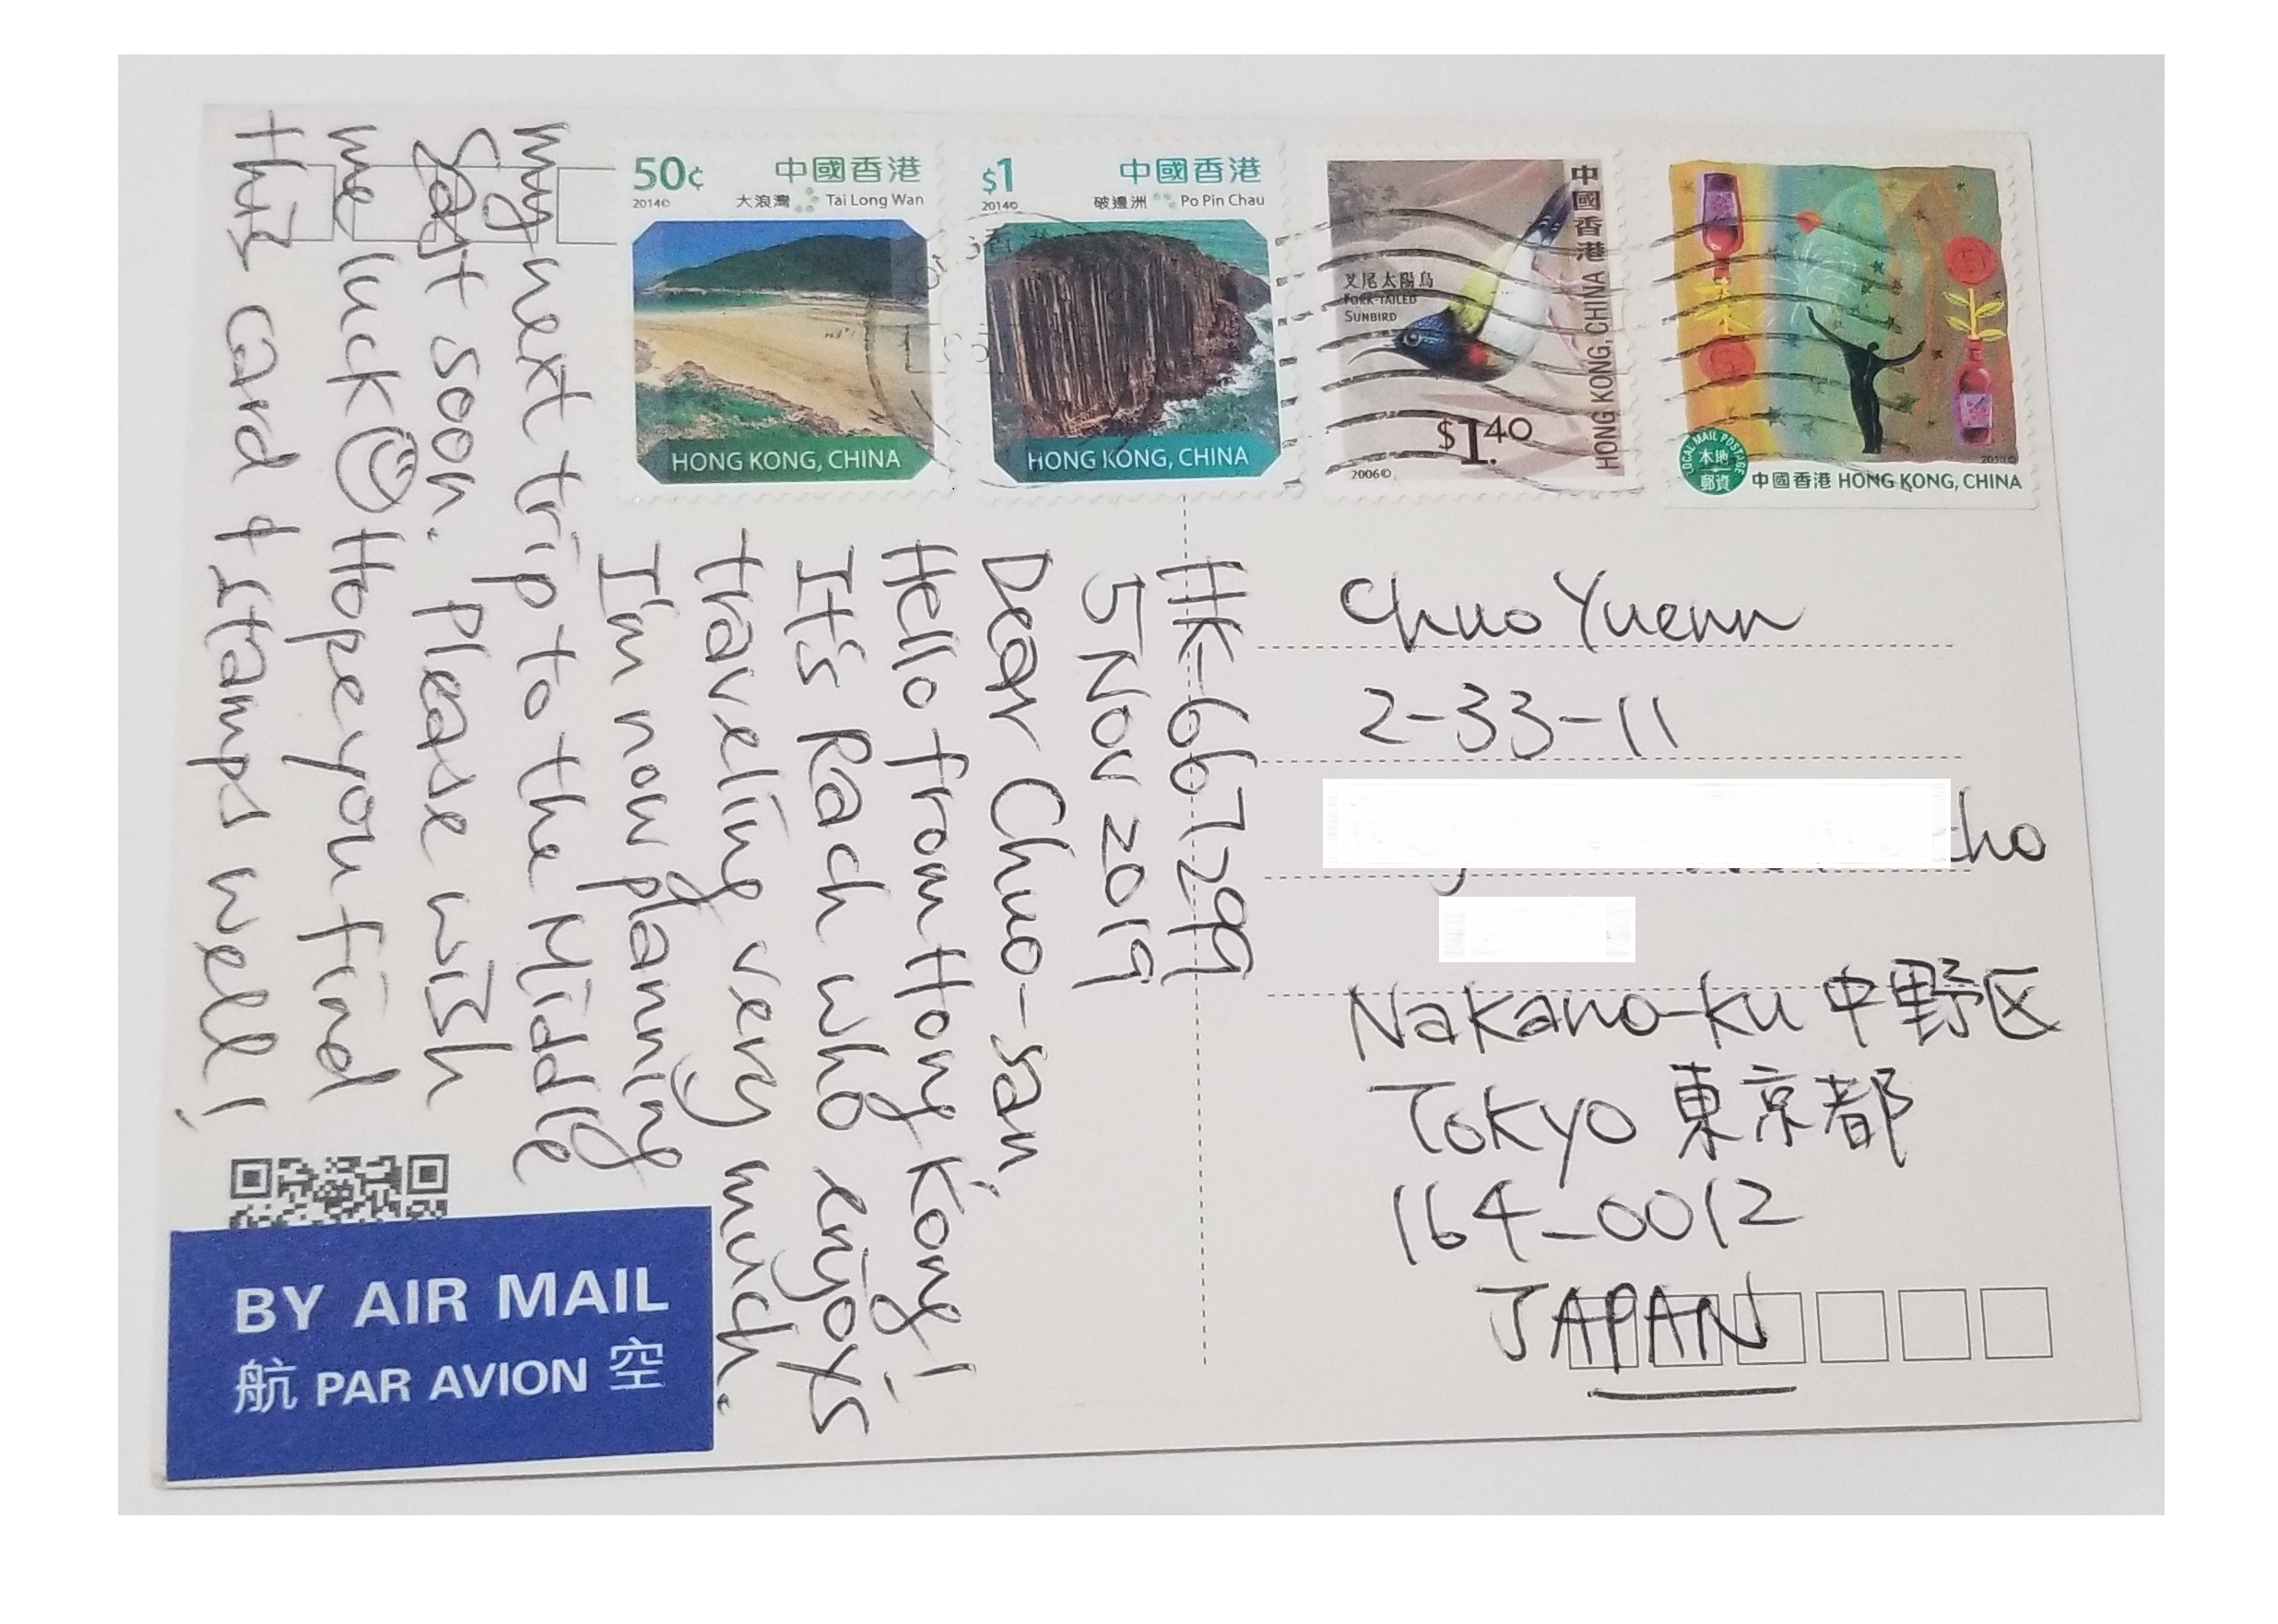 50¢ 中國香港
2014© 大浪灣 Tai Long Wan
HONG KONG, CHINA
$1 中國香港
2014© 破邊洲 Po Pin Chau
HONG KONG, CHINA
中國香港 HONG KONG, CHINA
叉尾太陽鳥
FORK-TAILED
SUNBIRD
$1.40
2006©
LOCAL MAIL POSTAGE
本地
郵資
中國香港 HONG KONG, CHINA
HK-667299
5 Nov 2019
Dear Chuo-san,
Hello from Hong Kong!
It's Rach who enjoys
traveling very much.
I'm now planning
my next trip to the Middle
East soon. Please wish
me luck Hope you find
this card & stamps well!
Chuo Yuenn
2-33-11
cho
Nakano-ku 中野区
Tokyo 東京都
164-0012
JAPAN
BY AIR MAIL
航 PAR AVION 空